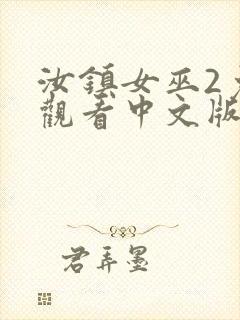 汝鎮女巫2免
觀看中文版
君弄墨